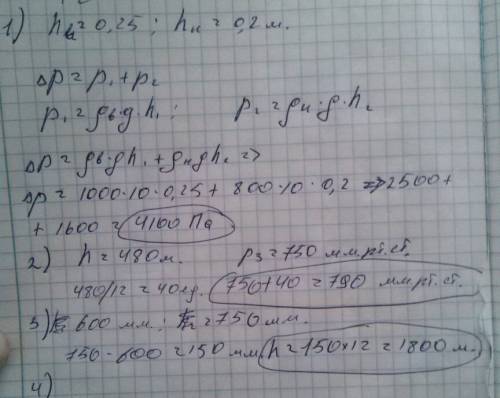 1) hв = 0,25 ; hк = 0,2 м.
Δp = p₁ + p₂
p₁ = gв·g·h₁ ; p₂ = gк·g·h₂
Δp = gв·gh₁ + gкgh₂ =>
Δp = 1000·10·0,25 + 800·10·0,2 => 2500 +
+ 1600 = 4100 Па
2) h = 480 м. p₃ = 750 мм.рт.ст.
480/12 = 40 ед. 750 + 40 = 790 мм.рт.ст.
3) 600 мм. ; = 750 мм.
750 - 600 = 150 мм h = 150 × 12 = 1800 м.
4)